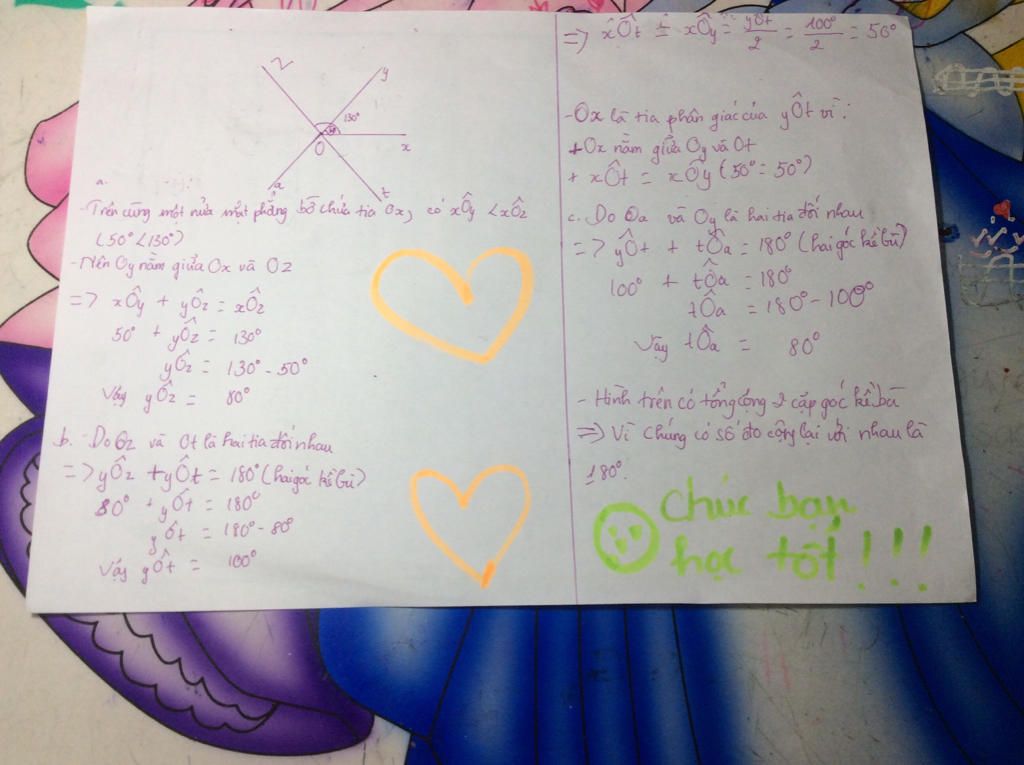 z
y
130°
50°
O
x
a
t
a.
- Trên cùng một nửa mặt phẳng bờ chứa tia Ox, có xÔy < xÔz
(50° < 130°)
- Nên Oy nằm giữa Ox và Oz
=> xÔy + yÔz = xÔz
50° + yÔz = 130°
yÔz = 130° - 50°
Vậy yÔz = 80°
b. - Do Oz và Ot là hai tia đối nhau
=> yÔz + yÔt = 180° (hai góc kề bù)
80° + yÔt = 180°
yÔt = 180° - 80°
Vậy yÔt = 100°
=> xÔt = xÔy = yÔt/2 = 100°/2 = 50°
- Ox là tia phân giác của yÔt vì:
+ Ox nằm giữa Oy và Ot
+ xÔt = xÔy (50° = 50°)
c. Do Oa và Oy là hai tia đối nhau
=> yÔt + tÔa = 180° (hai góc kề bù)
100° + tÔa = 180°
tÔa = 180° - 100°
Vậy tÔa = 80°
- Hình trên có tổng cộng 2 cặp góc kề bù
=> Vì chúng có số đo cộng lại với nhau là
180°.
Chúc bạn
học tốt!!!